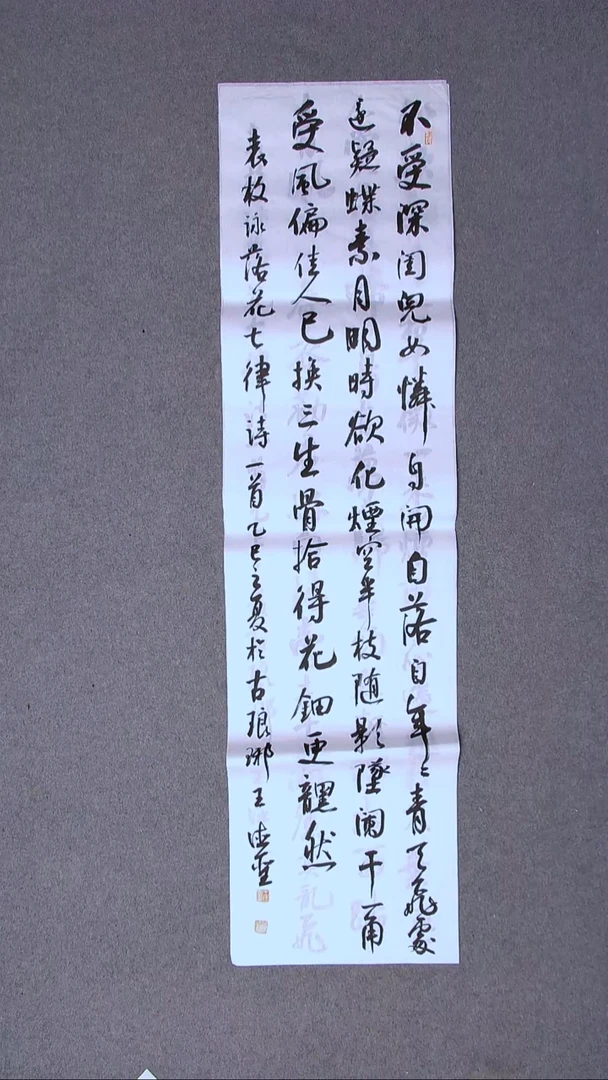 不受深闺兒女憐自開自落自年々青天飛處
還疑蝶素月明時欲化煙空半枝随影墜闌干一角
受風偏佳人已換三生骨拾得花鈿更黯然
袁枚詠落花七律詩一首乙巳之夏於古琅琊王